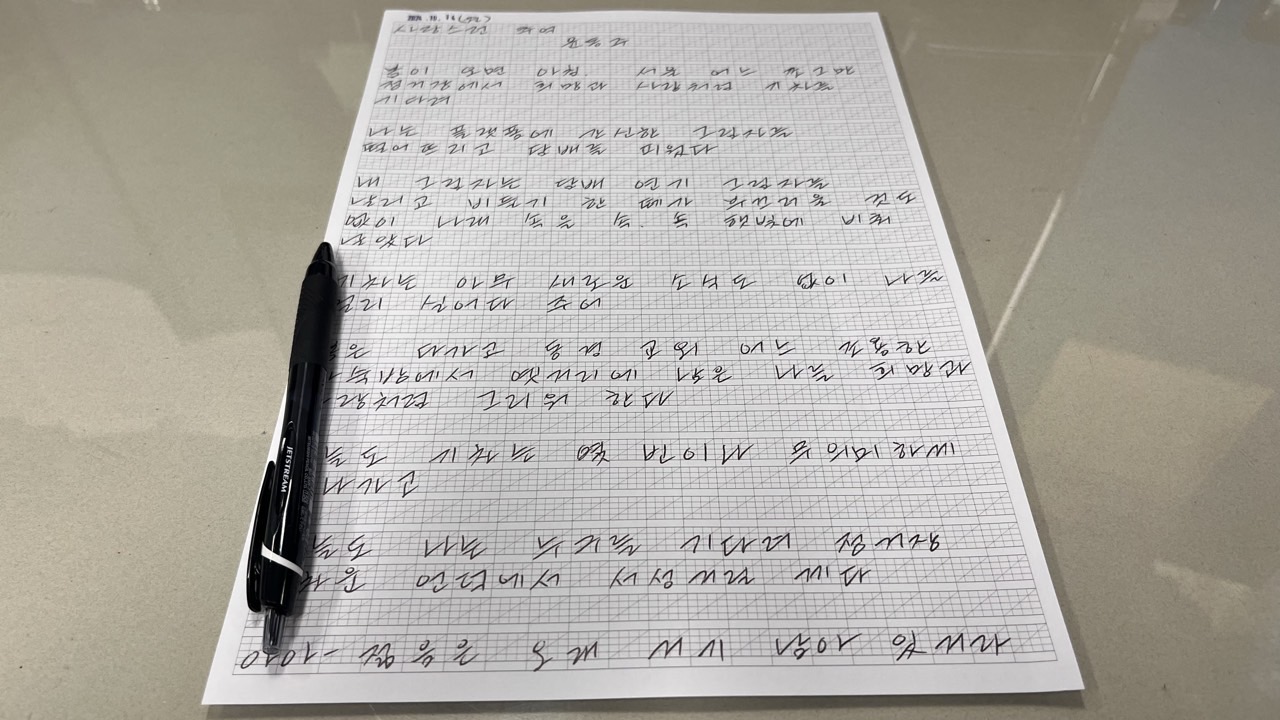 사랑스런 추억
윤동주
봄이 오면 아침. 서울 어느 쪼그만
정거장에서 희망과 사랑처럼 기차를
기다려
나는 플랫폼에 간신한 그림자를
떨어뜨리고 담배를 피웠다
내 그림자는 담배 연기 그림자를
날리고 비둘기 한 떼가 부끄러울 것도
없이 나래 속을 속. 속 햇빛에 비춰
날았다
기차는 아무 새로운 소식도 없이 나를
멀리 실어다 주어
봄은 다가고 동경 교외 어느 조용한
옛거리에 남은 나를 희망과
그리워 한다
기차는 몇 번이나 무의미하게
나는 누구를 기다려 정거장
언덕에서 서성거릴 게다
-아아 젊음은 오래 거기 남아 있거라
JETSTREAM